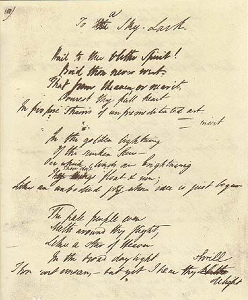 a
To the Sky-Lark
Hail to thee blithe Spirit!
Bird thou never wert
That from Heaven or near it
Pourest thy full heart
In profuse strains of unpremeditated art
In the golden lightning
Of the sunken Sun
clouds are brightning
Thou float & run;
Like an unbodied joy whose race is just begun
The pale purple even
Melts around thy flight,
Like a star of Heaven
In the broad day light
Shrill
Thou art unseen, — but yet I hear thy
delight